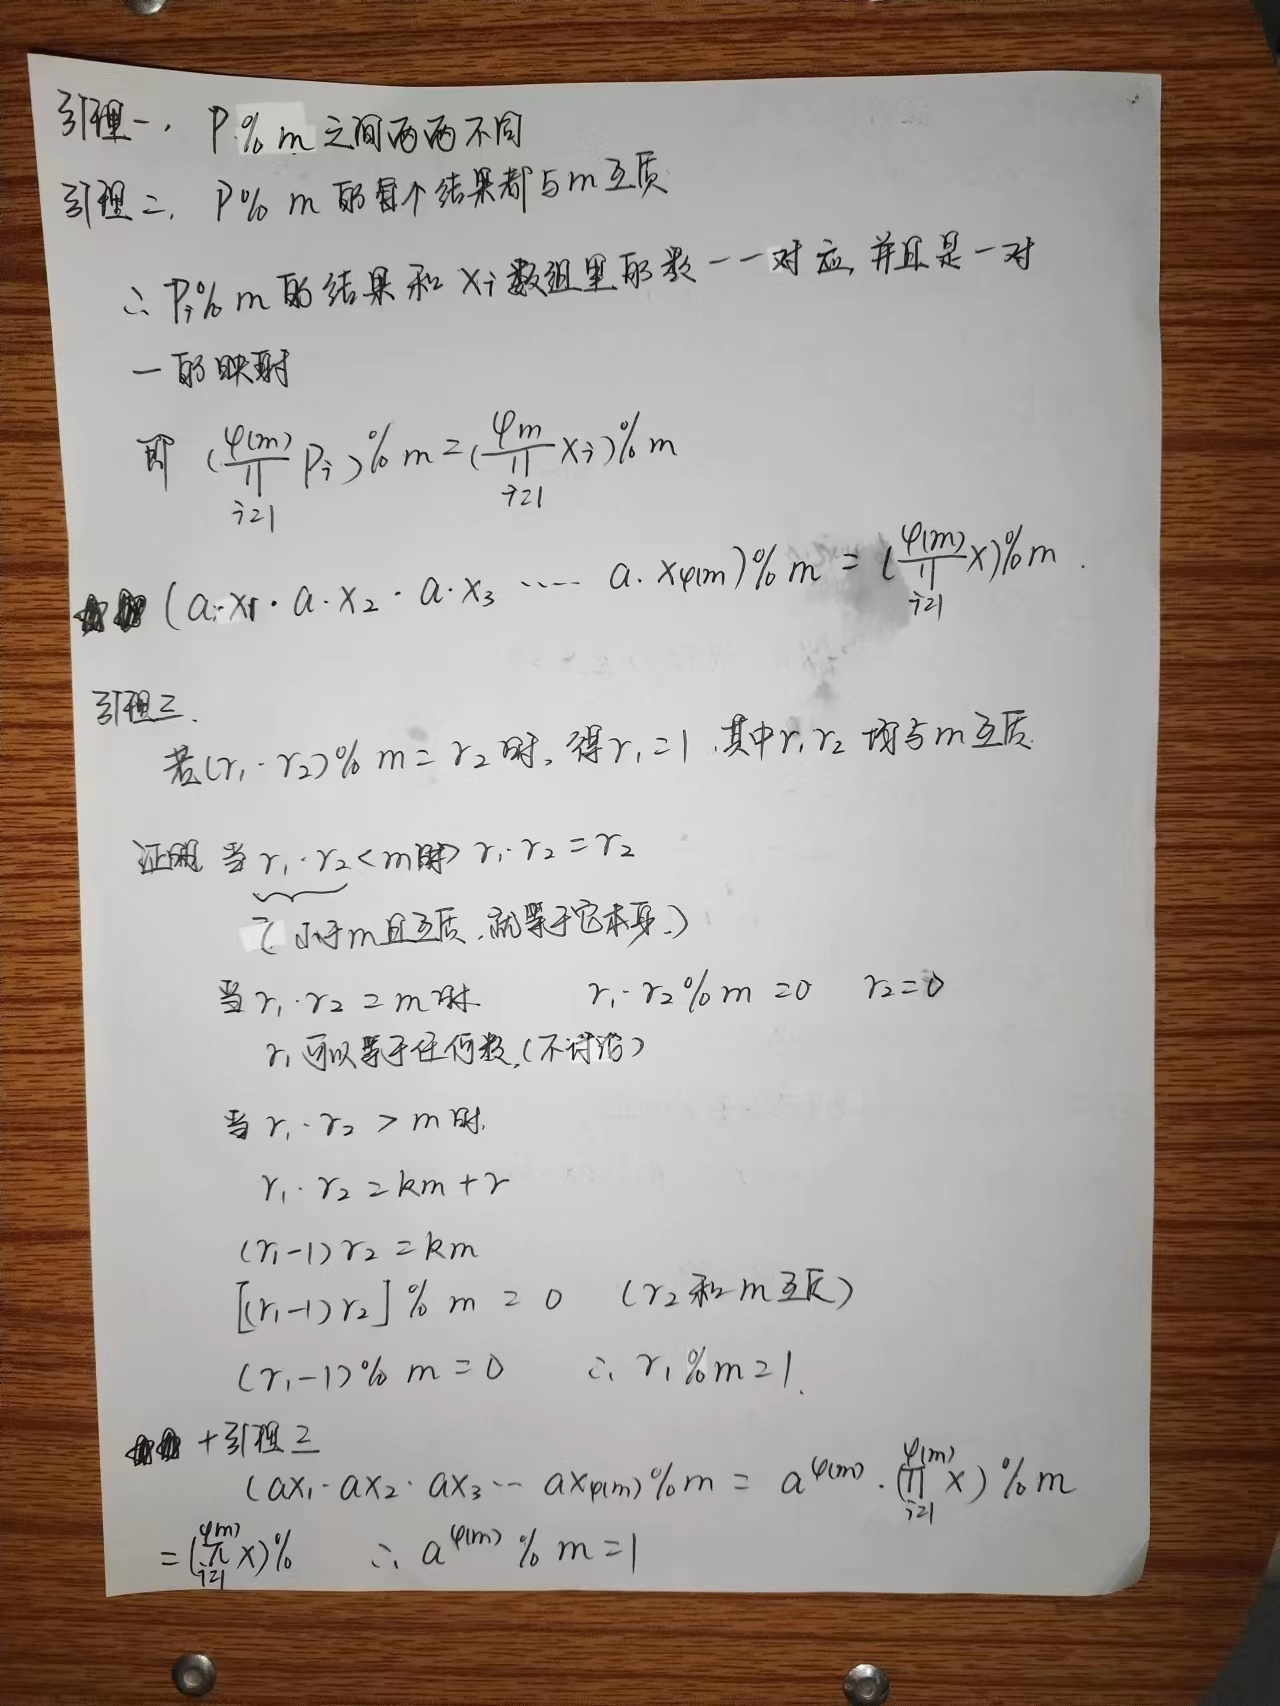 引理一. P % m 之间两两不同
引理二. P % m 的每个结果都与m互质
∴ Pi % m 的结果和 xi 数组里的数一一对应, 并且是一对
一的映射
即 (∏_{i=1}^{φ(m)} Pi) % m = (∏_{i=1}^{φm} xi) % m
(a·x1 · a·x2 · a·x3 ····· a·xφ(m)) % m = (∏_{i=1}^{φ(m)} x) % m.
引理三.
若(r1·r2) % m = r2 时, 得 r1 = 1, 其中 r1 r2 均与m互质.
证明 当 r1·r2 < m时 r1·r2 = r2
(小于m且互质, 就等于它本身.)
当 r1·r2 = m 时. r1·r2 % m = 0 r2 = 0
r1 可以等于任何数, (不讨论)
当 r1·r2 > m 时,
r1·r2 = km + r
(r1-1) r2 = km
[(r1-1) r2] % m = 0 (r2 和 m 互质)
(r1-1) % m = 0 ∴ r1 % m = 1.
+引理三
(ax1·ax2·ax3 ··· axφ(m)) % m = a^{φ(m)}·(∏_{i=1}^{φ(m)} x) % m
= (∏_{i=1}^{φ(m)} x) % ∴ a^{φ(m)} % m = 1